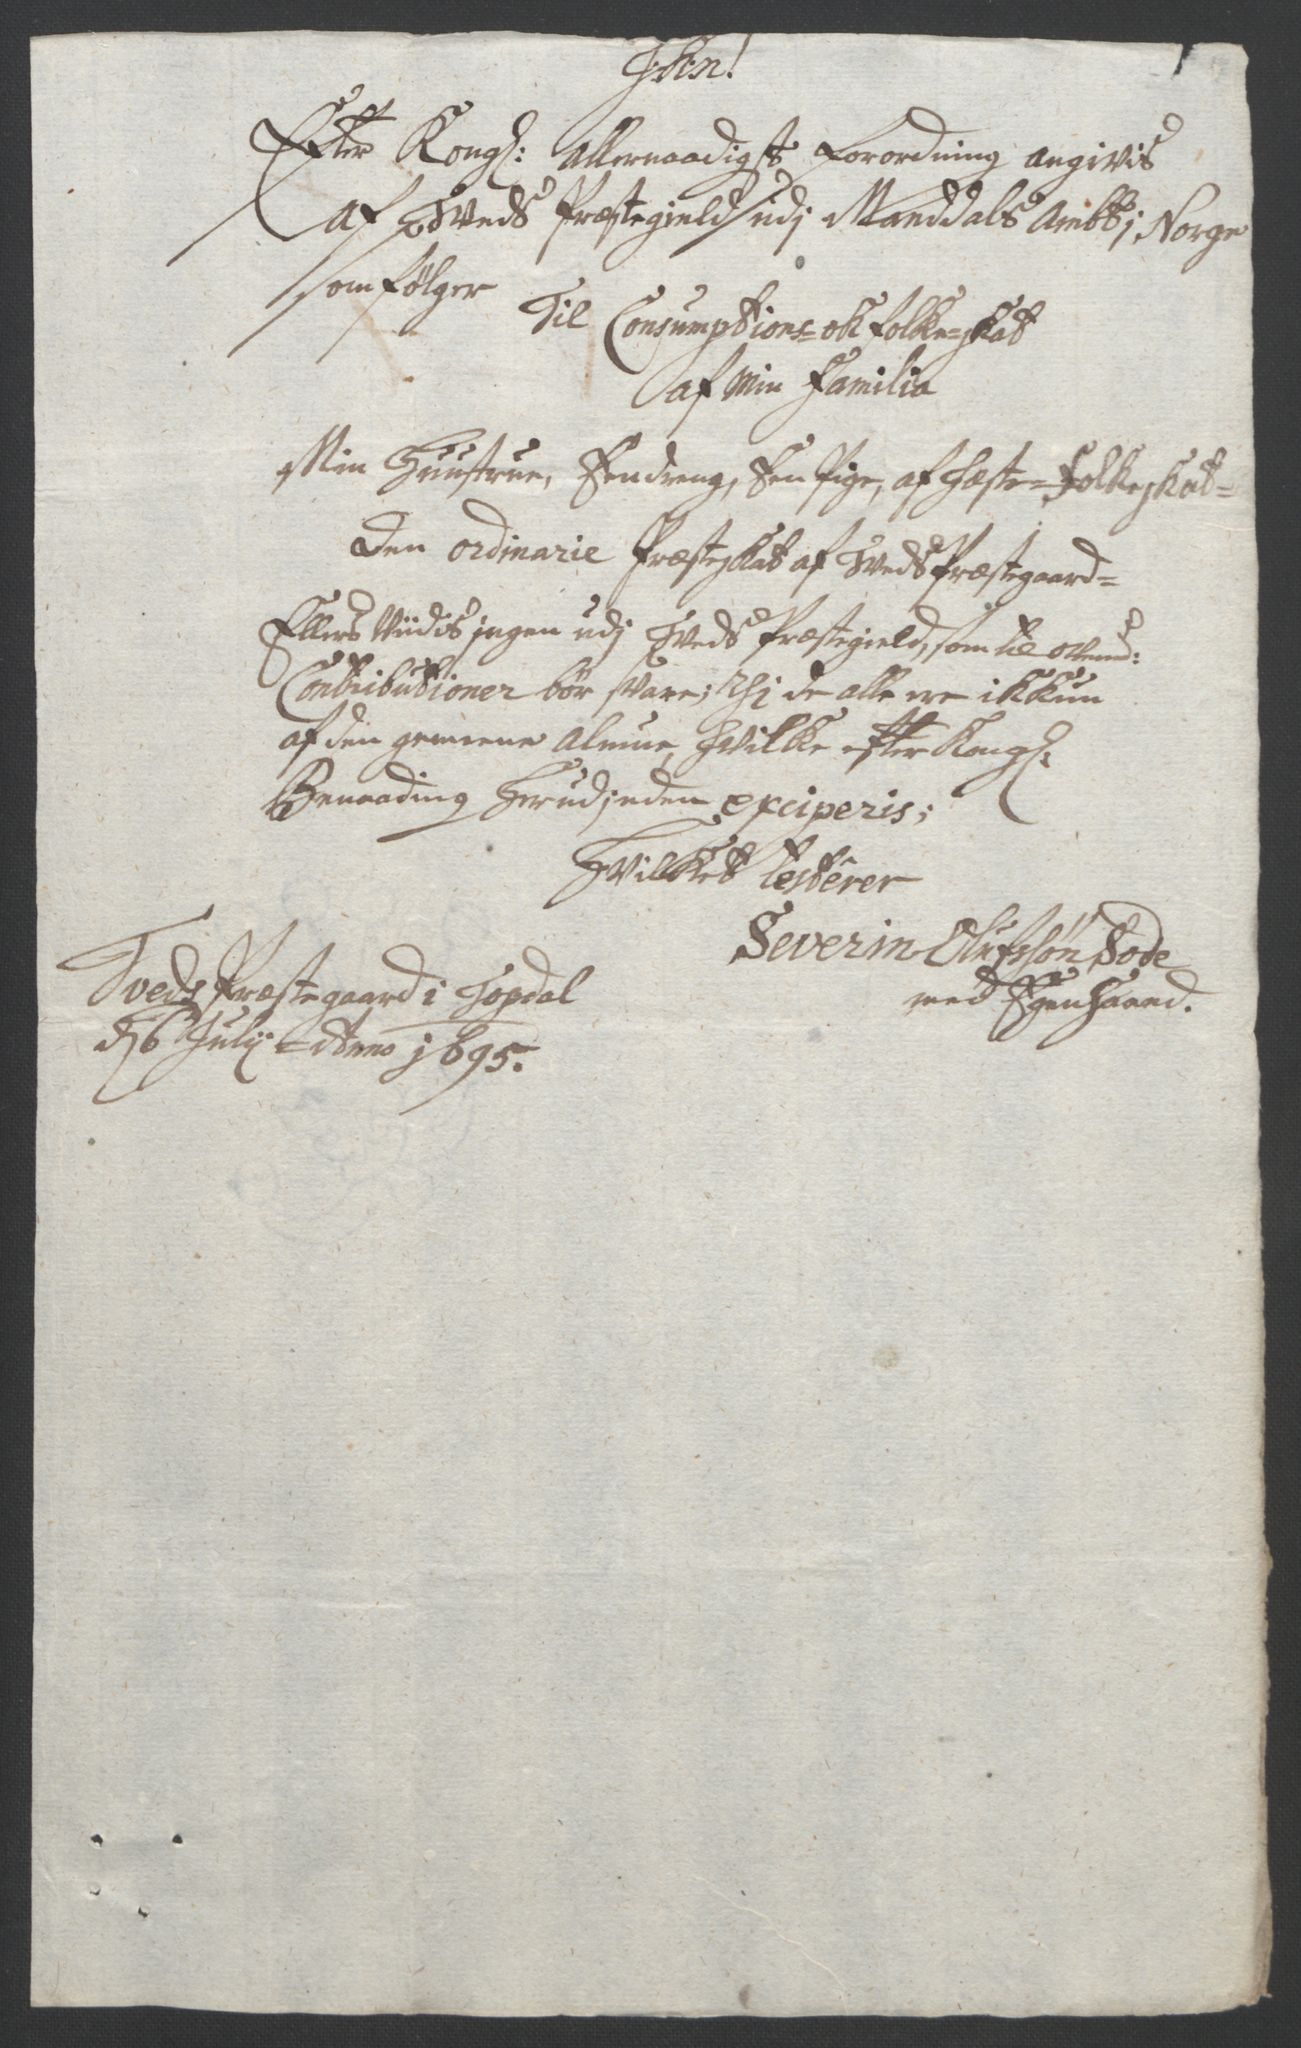 Efter Kongl: Allernaadigste Forordning angivis
af Tveds Præstegield udj Manddals Ambt j Norge
som følger
Til Consumptions= ok folke=skat
af Min Familia
Min Huustrue, Een dreng, Een Pige, af hæste= Folkeskat=
Den ordinarie Præsteskat af Tveds Præstegaard=
Ellers Viidis jngen udj Tveds Præstegield, som til ovend:
Contributioner bör svare; Thj de alle ere ikkun
af den gemeene Almue, Hvilke efter Kongl:
Benaading Herudjnden exciperis;
Hvilket testerer
Severin Olufssøn Bode
med Egen Haand.
Tveds Præstegaard i Topdal
d. 6 Julij Anno 1695.